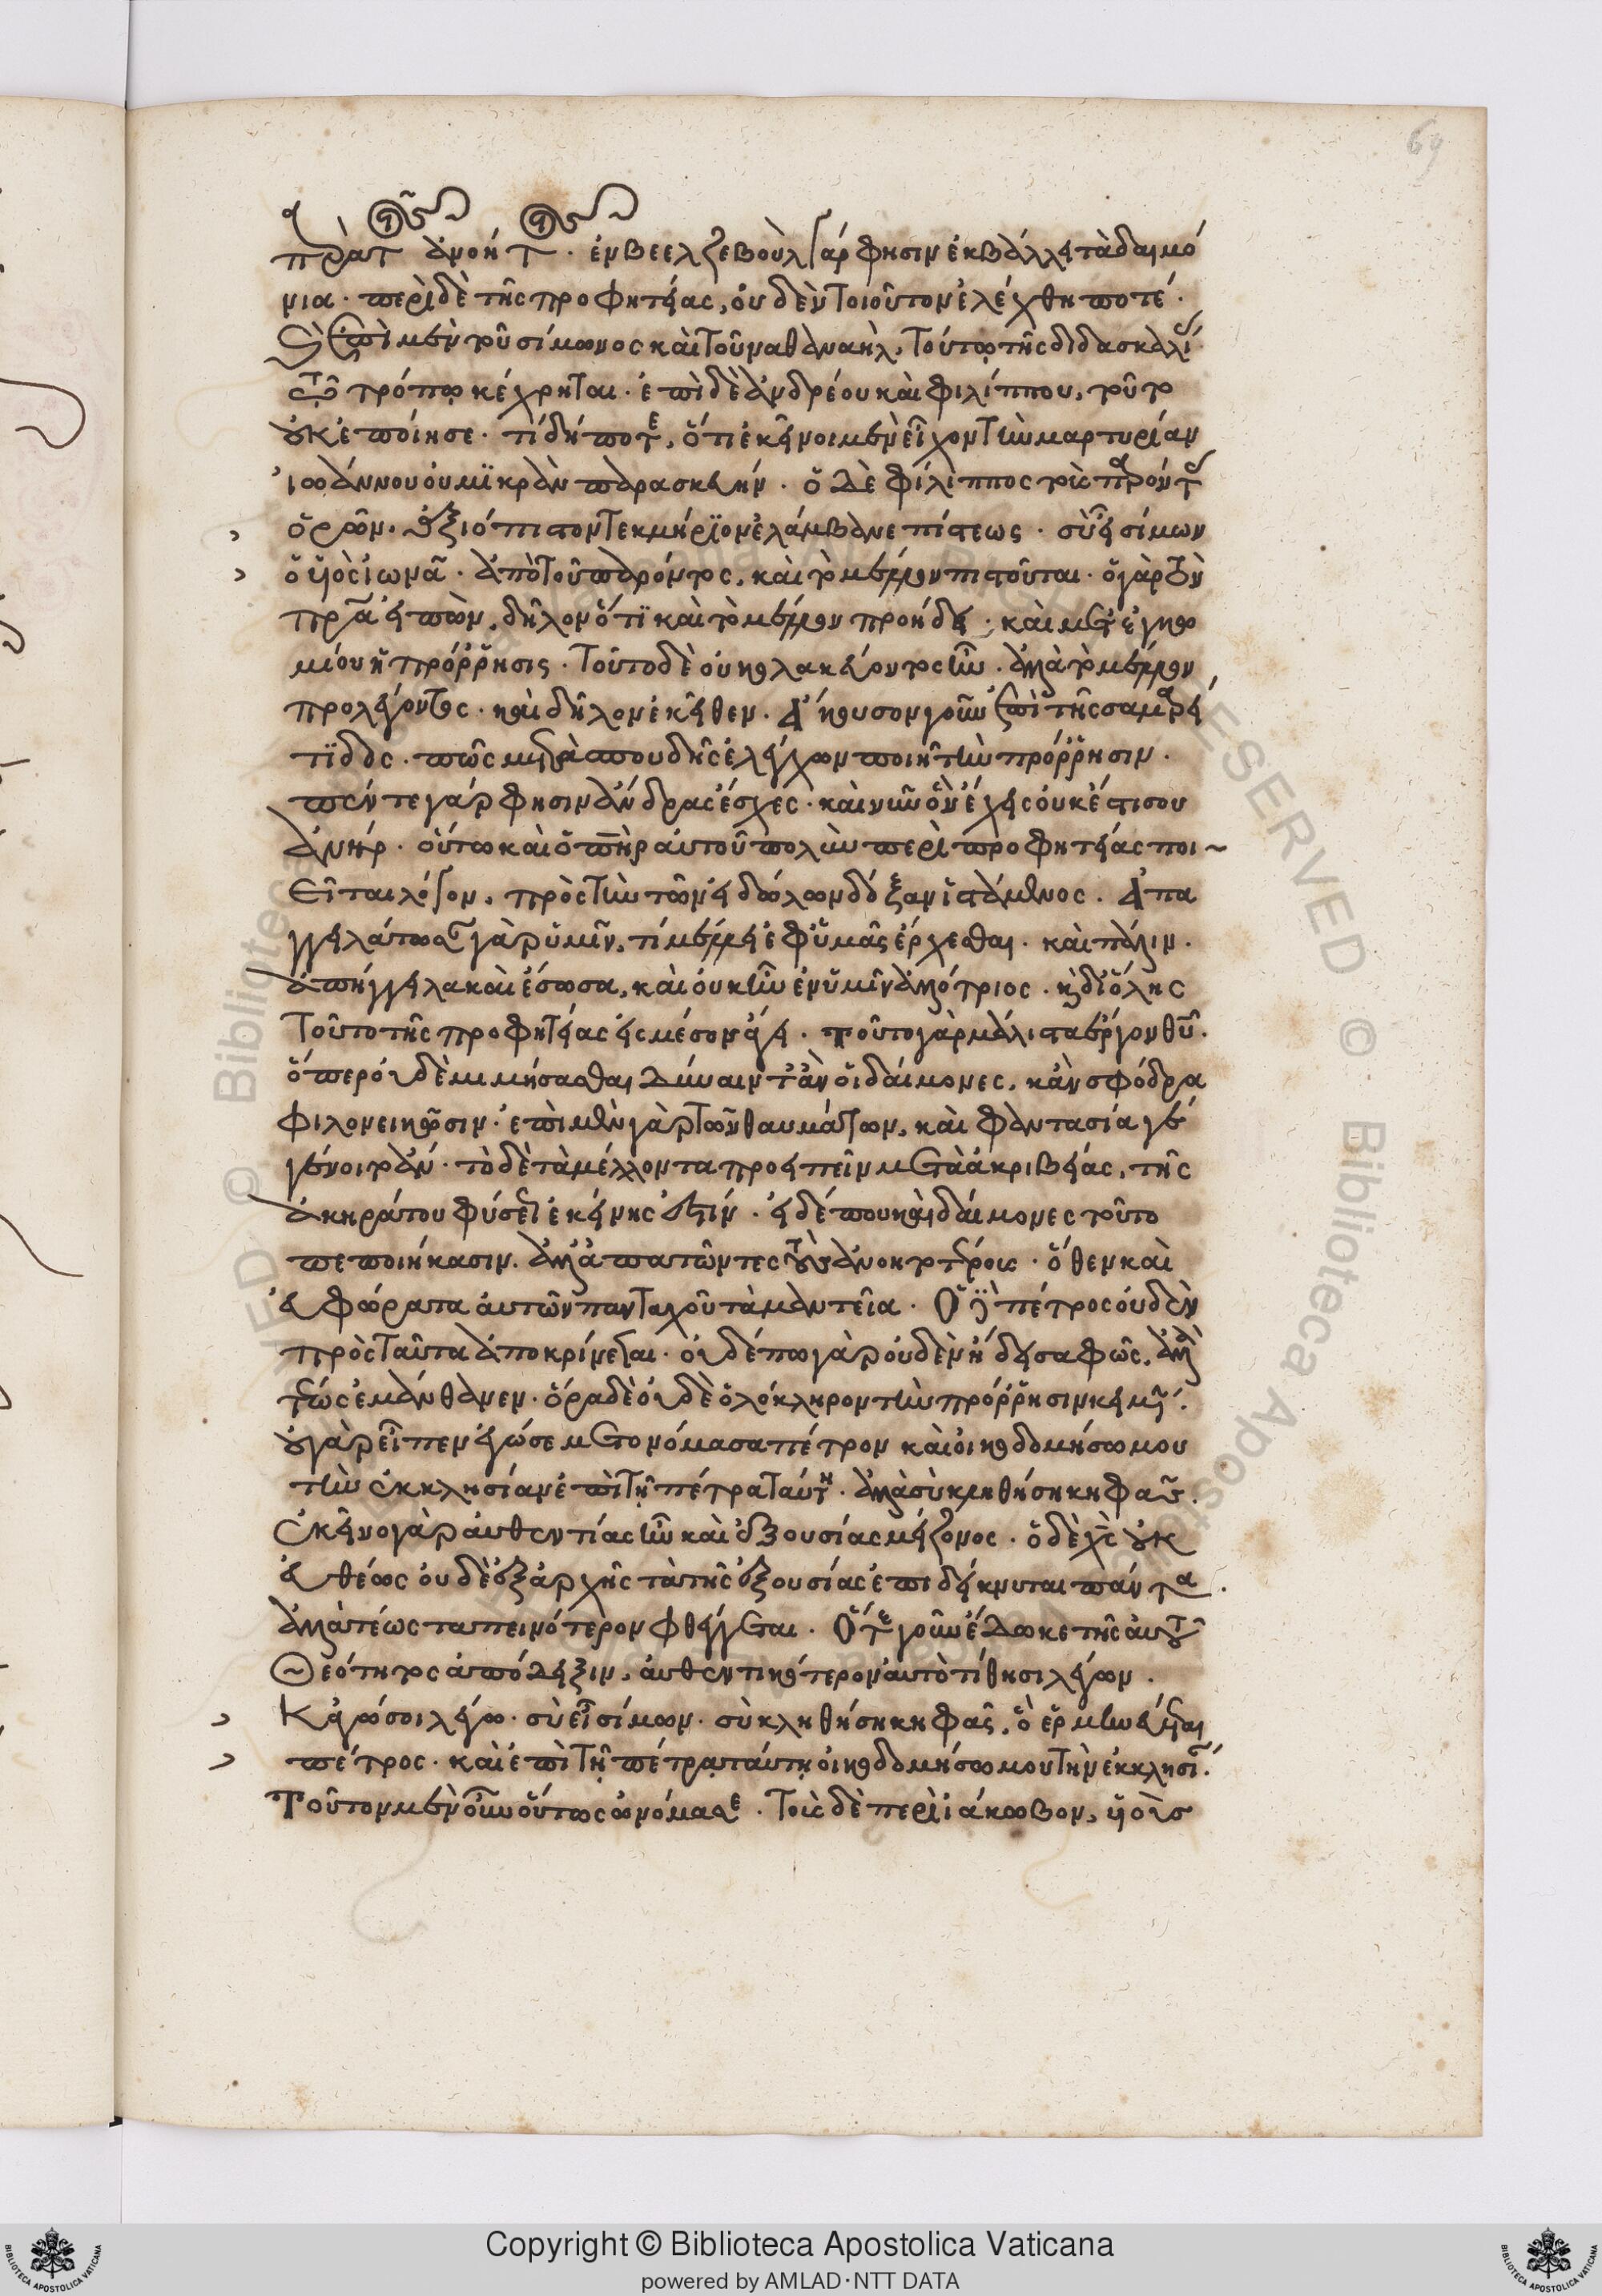 69
παρατ ἀνοήτ · ἐν βεελζεβοὺλ γάρ φησιν ἐκβάλλει τὰ δαιμό
νια · περὶ δὲ τῆς προφητείας, οὐδὲν τοιοῦτον ἐλέχθη ποτέ ·
ἐπὶ μὲν τοῦ σίμωνος καὶ τοῦ ναθαναὴλ, τούτω τῆς διδασκαλί
τῶ τρόπω κέχρηται · ἐπὶ δὲ ἀνδρέου καὶ φιλίππου, τοῦτο
οὐκ ἐποίησε · τί δήποτε, ὅτι ἐκεῖνοι μὲν εἶχον τὴν μαρτυρίαν
ἰωάννου οὐ μϊκρὰν παρασκευήν · ὁ δὲ φίλιππος τοὺς παρόντ
ὁρῶν · ἀξιόπιστον τεκμήρϊον ἐλάμβανε πίστεως · σὺ εἶ σίμων
ὁ υἱὸς ἰωνᾶ · ἀπὸ τοῦ παρόντος, καὶ τὸ μέλλον πιστοῦται · ὁ γὰρ τὸν
πρα εἰπὼν, δῆλον ὅτϊ καὶ τὸ μέλλον προήδει · καὶ μετ' ἐγκω
μίου ἡ πρόρρησις · τοῦτο δὲ οὐ κολακεύοντος ἦν · ἀλλὰ τὸ μέλλον
προλέγοντος · καὶ δῆλον ἐκεῖθεν · ἄκουσον γοῦν ἐπὶ τῆς σαμαρεί
τϊδος · πῶς μετὰ σπουδῆς ἐλέγχων ποιεῖ τὴν πρόρρησιν ·
πέντε γάρ φησιν ἄνδρας ἔσχες · καὶ νῦν ὃν ἔχεις οὐκ ἔστι σου
ἀνήρ · οὕτω καὶ ὁ πηρ αὐτοῦ πολὺν περὶ προφητείας ποι
εῖται λόγον, πρὸς τὴν τῶν εἰδώλων δόξαν ἱστάμενος · ἀπα
γγειλάτωσαν γὰρ ὑμῖν, τί μέλλει ἐφ' ὑμᾶς ἔρχεσθαι · καὶ πάλιν ·
ἀπήγγειλα καὶ ἔσωσα, καὶ οὐκ ἦν ἐν ὑμῖν ἀλλότριος · καὶ δι' ὅλης
τοῦτο τῆς προφητείας εἰς μέσον ἄγει · τοῦτο γὰρ μάλιστα ἔργον θυ ·
ὅπερ οὐδὲ μιμήσασθαι δύναιντ' ἂν οἱ δαίμονες, κἂν σφόδρα
φιλονεικῶσιν · ἐπὶ μὲν γὰρ τῶν θαυμάτων, καὶ φαντασία γέ
γένοιτ' ἄν · τὸ δὲ τὰ μέλλοντα προειπεῖν μετὰ ἀκριβείας, τῆς
ἀκηράτου φύσεως ἐκείνης ἐστίν · εἰ δέ που καὶ δαίμονες τοῦτο
πεποιήκασιν · ἀλλ' ἀπατῶντες τοὺς ἀνοητοτέρους · ὅθεν καὶ
εὐφώρατα αὐτῶν πανταχοῦ τὰ μαντεῖα · ὁ πέτρος οὐδὲν
πρὸς ταῦτα ἀποκρίνεται · οὐδέπω γὰρ οὐδὲν ἤδει σαφῶς, ἀλλὰ
τέως ἐμάνθανεν · ὅρα δὲ οὐδὲ ὁλόκληρον τὴν πρόρρησιν κειμέν ·
οὐ γὰρ εἶπεν ἐγώ σε μετονόμασα πέτρον καὶ οἰκοδομήσω μου
τὴν ἐκκλησίαν ἐπὶ τῆ πέτρα ταύτη · ἀλλὰ σὺ κληθήση κηφᾶς ·
ἐκεῖνο γὰρ αὐθεντίας ἦν καὶ ἐξουσίας μείζονος · ὁ δὲ χς οὐκ
εὐθέως οὐδὲ ἐξ ἀρχῆς τὰ τῆς ἐξουσίας ἐπιδείκνυται πάντα ·
ἀλλὰ τέως ταπεινότερον φθέγγεται · ὅτε γοῦν ἔδωκε τῆς αὐτοῦ
θεότητος ἀπόδειξιν, αὐθεντικώτερον αὐτὸ τίθησι λέγων ·
κἀγώ σοι λέγω · σὺ εἶ σίμων · σὺ κληθήση κηφᾶς, ὃ ἑρμηνεύεται
πέτρος · καὶ ἐπὶ τῆ πέτρα ταύτη οἰκοδομήσω μου τὴν ἐκκλησί ·
τοῦτον μὲν οὖν οὕτως ὠνόμασε · τοὺς δὲ περὶ ἰάκωβον, υἱοὺς
Copyright © Biblioteca Apostolica Vaticana
powered by AMLAD·NTT DATA